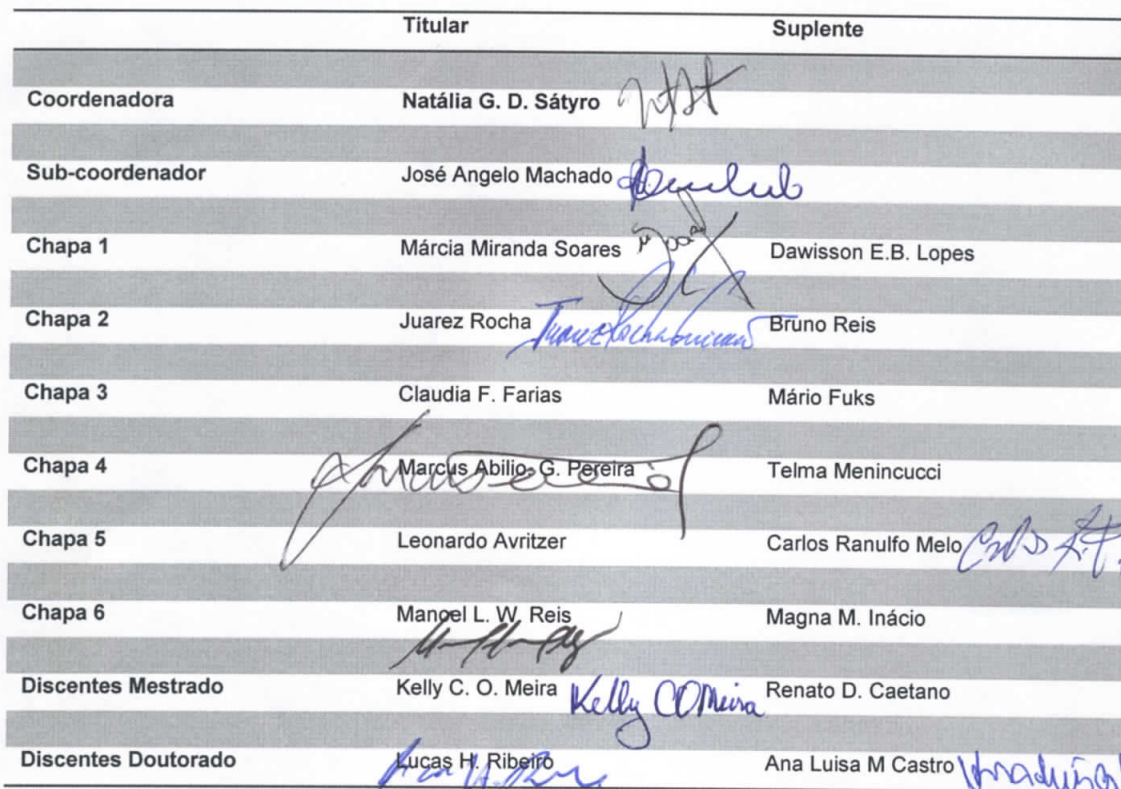 Titular Suplente
Coordenadora Natália G. D. Sátyro
Sub-coordenador José Angelo Machado
Chapa 1 Márcia Miranda Soares Dawisson E.B. Lopes
Chapa 2 Juarez Rocha Bruno Reis
Chapa 3 Claudia F. Farias Mário Fuks
Chapa 4 Marcus Abilio G. Pereira Telma Menincucci
Chapa 5 Leonardo Avritzer Carlos Ranulfo Melo
Chapa 6 Manoel L. W. Reis Magna M. Inácio
Discentes Mestrado Kelly C. O. Meira Kelly C O Meira Renato D. Caetano
Discentes Doutorado Lucas H. Ribeiro Ana Luisa M Castro